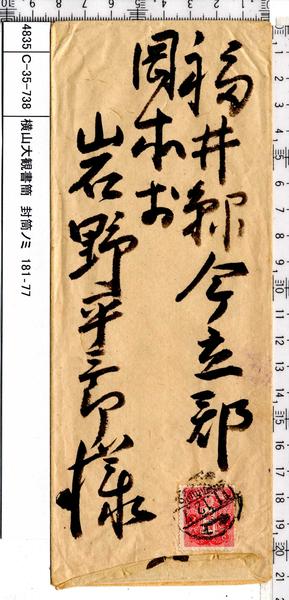 福井縣今立郡
岡本村
岩野平三郎様
4835 C-35-738 横山大観書簡 封筒ノミ 181-77